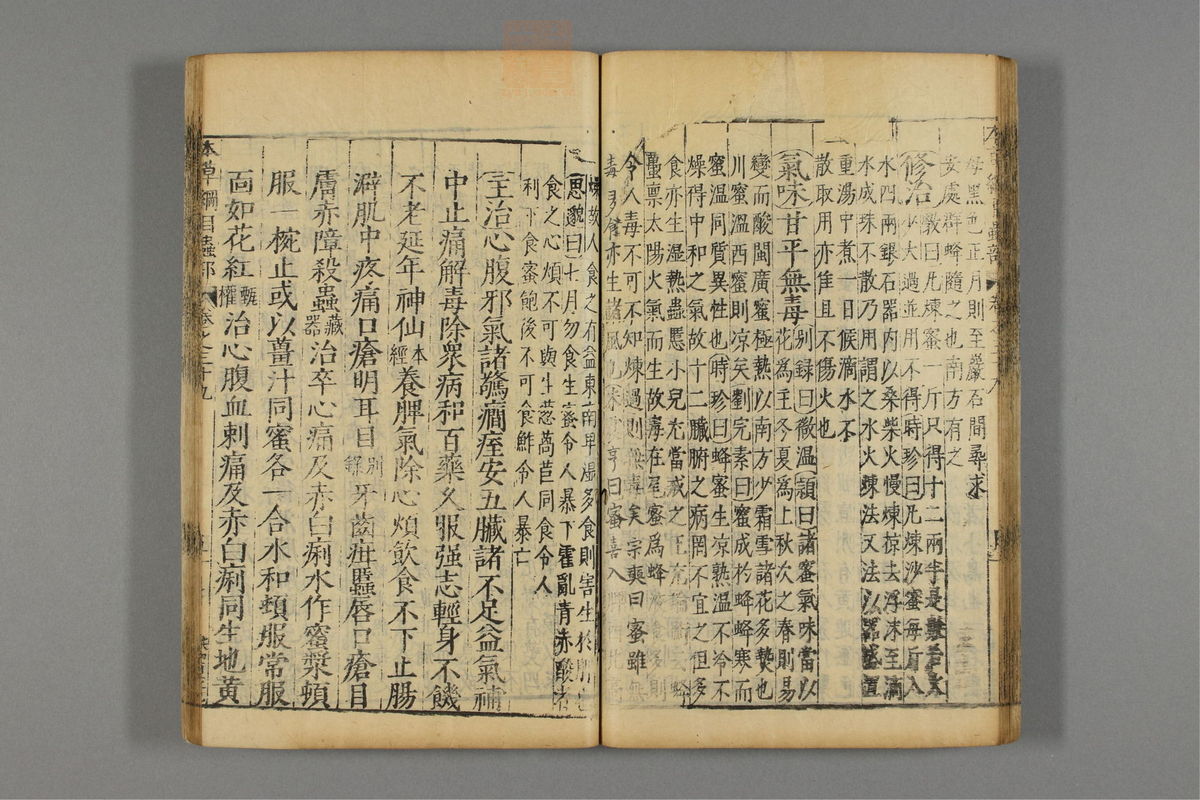 母黑色正月則至巖石間尋求
安處群蜂隨之也南方有之
修治 斆曰凡煉蜜一斤只得十二兩半是數若火
少火過並用不得時珍曰凡煉沙蜜每斤入
水四兩銀石器內以桑柴火慢煉掠去浮沫至滴
水成珠不散乃用謂之水火煉法又法以器盛置
重湯中煮一日候滴水不
散取用亦佳且不傷火也
氣味甘平無毒 別録曰微溫穎曰諸蜜氣味當以
花爲主冬夏爲上秋次之春則易
變而酸閩廣蜜極熱以南方少霜雪諸花多熱也
川蜜溫西蜜則凉矣劉完素曰蜜成於蜂蜂寒而
蜜溫同質異性也時珍曰蜂蜜生凉熟溫不冷不
燥得中和之氣故十二臟腑之病罔不宜之但多
食亦生湿熱蟲䘌小兒尤當戒之王充論衡云蜂
蠆禀太陽火氣而生故毒在尾蜜爲蜂
令人毒不可不知煉過則無毒矣宗奭曰蜜雖無
毒多食亦生諸風也朱震亨曰蜜喜入
燥故人食之有益東南卑濕多食則害生於脾也
思邈曰七月勿食生蜜令人暴下霍亂青赤酸者
食之心煩不可與生葱萵苣同食令人
利下食蜜飽後不可食鮓令人暴亡
主治心腹邪氣諸驚癇痓安五臟諸不足益氣補
中止痛解毒除衆病和百藥久服强志輕身不饑
不老延年神仙本經養脾氣除心煩飲食不下止腸
澼肌中疼痛口瘡明耳目别録牙齒疳䘌唇口瘡目
膚赤障殺蟲藏器治卒心痛及赤白痢水作蜜漿頓
服一椀止或以薑汁同蜜各一合水和頓服常服
面如花紅甄權治心腹血刺痛及赤白痢同生地黃
本草綱目蟲部 卷之三十九